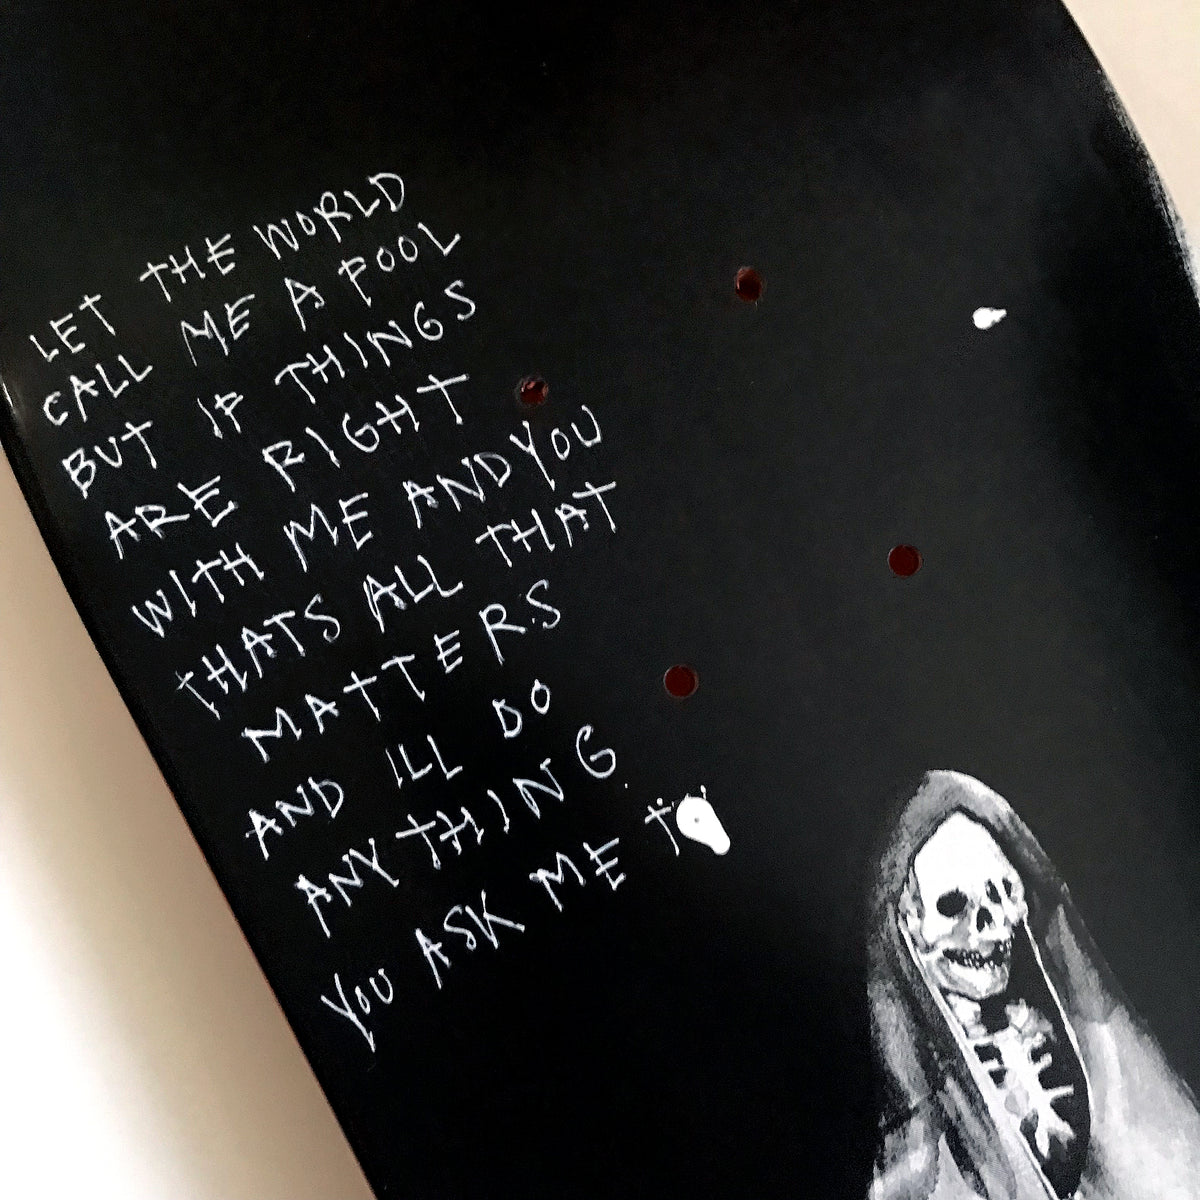 LET THE WORLD
CALL ME A FOOL
BUT IF THINGS
ARE RIGHT
WITH ME AND YOU
THATS ALL THAT
MATTERS
AND ILL DO
ANYTHING
YOU ASK ME TO